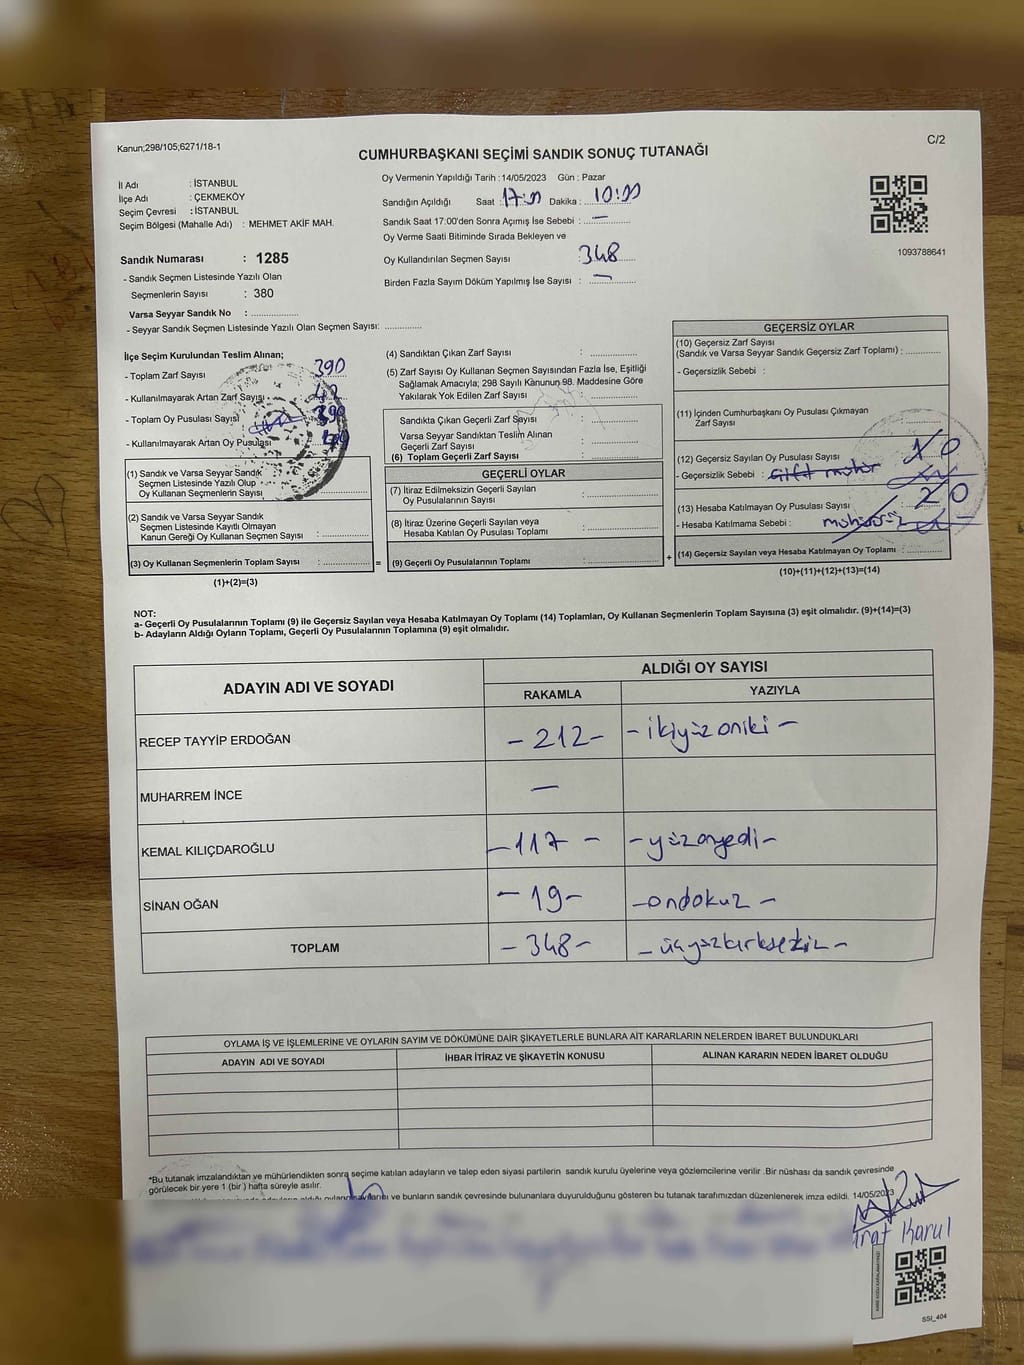 Kanun;298/105;6271/18-1
C/2
CUMHURBAŞKANI SEÇİMİ SANDIK SONUÇ TUTANAĞI
İl Adı : İSTANBUL
İlçe Adı : ÇEKMEKÖY
Seçim Çevresi : İSTANBUL
Seçim Bölgesi (Mahalle Adı) : MEHMET AKİF MAH.
Oy Vermenin Yapıldığı Tarih : 14/05/2023 Gün : Pazar
Sandığın Açıldığı Saat : 17:00 Dakika : 10:00
Sandık Saat 17:00'den Sonra Açımış İse Sebebi : —
Oy Verme Saati Bitiminde Sırada Bekleyen ve
Oy Kullandırılan Seçmen Sayısı : 348
Birden Fazla Sayım Döküm Yapılmış İse Sayısı : —
1093788641
Sandık Numarası : 1285
- Sandık Seçmen Listesinde Yazılı Olan
Seçmenlerin Sayısı : 380
Varsa Seyyar Sandık No : ..............
- Seyyar Sandık Seçmen Listesinde Yazılı Olan Seçmen Sayısı: ............
İlçe Seçim Kurulundan Teslim Alınan;
- Toplam Zarf Sayısı 390
- Kullanılmayarak Artan Zarf Sayısı : 42
- Toplam Oy Pusulası Sayısı 390
- Kullanılmayarak Artan Oy Pusulası
(1) Sandık ve Varsa Seyyar Sandık
Seçmen Listesinde Yazılı Olup
Oy Kullanan Seçmenlerin Sayısı
(2) Sandık ve Varsa Seyyar Sandık
Seçmen Listesinde Kayıtlı Olmayan
Kanun Gereği Oy Kullanan Seçmen Sayısı :
(3) Oy Kullanan Seçmenlerin Toplam Sayısı :
(1)+(2)=(3)
=
(4) Sandıktan Çıkan Zarf Sayısı :
(5) Zarf Sayısı Oy Kullanan Seçmen Sayısından Fazla İse, Eşitliği
Sağlamak Amacıyla; 298 Sayılı Kanunun 98. Maddesine Göre
Yakılarak Yok Edilen Zarf Sayısı :
Sandıkta Çıkan Geçerli Zarf Sayısı :
Varsa Seyyar Sandıktan Teslim Alınan
Geçerli Zarf Sayısı :
(6) Toplam Geçerli Zarf Sayısı :
GEÇERLİ OYLAR
(7) İtiraz Edilmeksizin Geçerli Sayılan
Oy Pusulalarının Sayısı :
(8) İtiraz Üzerine Geçerli Sayılan veya
Hesaba Katılan Oy Pusulası Toplamı :
(9) Geçerli Oy Pusulalarının Toplamı :
+
GEÇERSİZ OYLAR
(10) Geçersiz Zarf Sayısı
(Sandık ve Varsa Seyyar Sandık Geçersiz Zarf Toplamı) :
- Geçersizlik Sebebi :
(11) İçinden Cumhurbaşkanı Oy Pusulası Çıkmayan
Zarf Sayısı
(12) Geçersiz Sayılan Oy Pusulası Sayısı
- Geçersizlik Sebebi : Çift mühür
(13) Hesaba Katılmayan Oy Pusulası Sayısı 20
- Hesaba Katılmama Sebebi : mühürsüz
(14) Geçersiz Sayılan veya Hesaba Katılmayan Oy Toplamı :
(10)+(11)+(12)+(13)=(14)
NOT:
a- Geçerli Oy Pusulalarının Toplamı (9) ile Geçersiz Sayılan veya Hesaba Katılmayan Oy Toplamı (14) Toplamları, Oy Kullanan Seçmenlerin Toplam Sayısına (3) eşit olmalıdır. (9)+(14)=(3)
b- Adayların Aldığı Oyların Toplamı, Geçerli Oy Pusulalarının Toplamına (9) eşit olmalıdır.
ADAYIN ADI VE SOYADI
ALDIĞI OY SAYISI
RAKAMLA YAZIYLA
RECEP TAYYİP ERDOĞAN - 212 - - ikiyüzoniki -
MUHARREM İNCE —
KEMAL KILIÇDAROĞLU - 117 - - yüzonyedi -
SİNAN OĞAN - 19 - - ondokuz -
TOPLAM - 348 - - üçyüzkırksekiz -
OYLAMA İŞ VE İŞLEMLERİNE VE OYLARIN SAYIM VE DÖKÜMÜNE DAİR ŞİKAYETLERLE BUNLARA AİT KARARLARIN NELERDEN İBARET BULUNDUKLARI
ADAYIN ADI VE SOYADI İHBAR İTİRAZ VE ŞİKAYETİN KONUSU ALINAN KARARIN NEDEN İBARET OLDUĞU
*Bu tutanak imzalandıktan ve mühürlendikten sonra seçime katılan adayların ve talep eden siyasi partilerin sandık kurulu üyelerine veya gözlemcilerine verilir .Bir nüshası da sandık çevresinde
görülecek bir yere 1 (bir ) hafta süreyle asılır.
ve bunların sandık çevresinde bulunanlara duyurulduğunu gösteren bu tutanak tarafımızdan düzenlenerek imza edildi. 14/05/2023
Karul
SSI_404